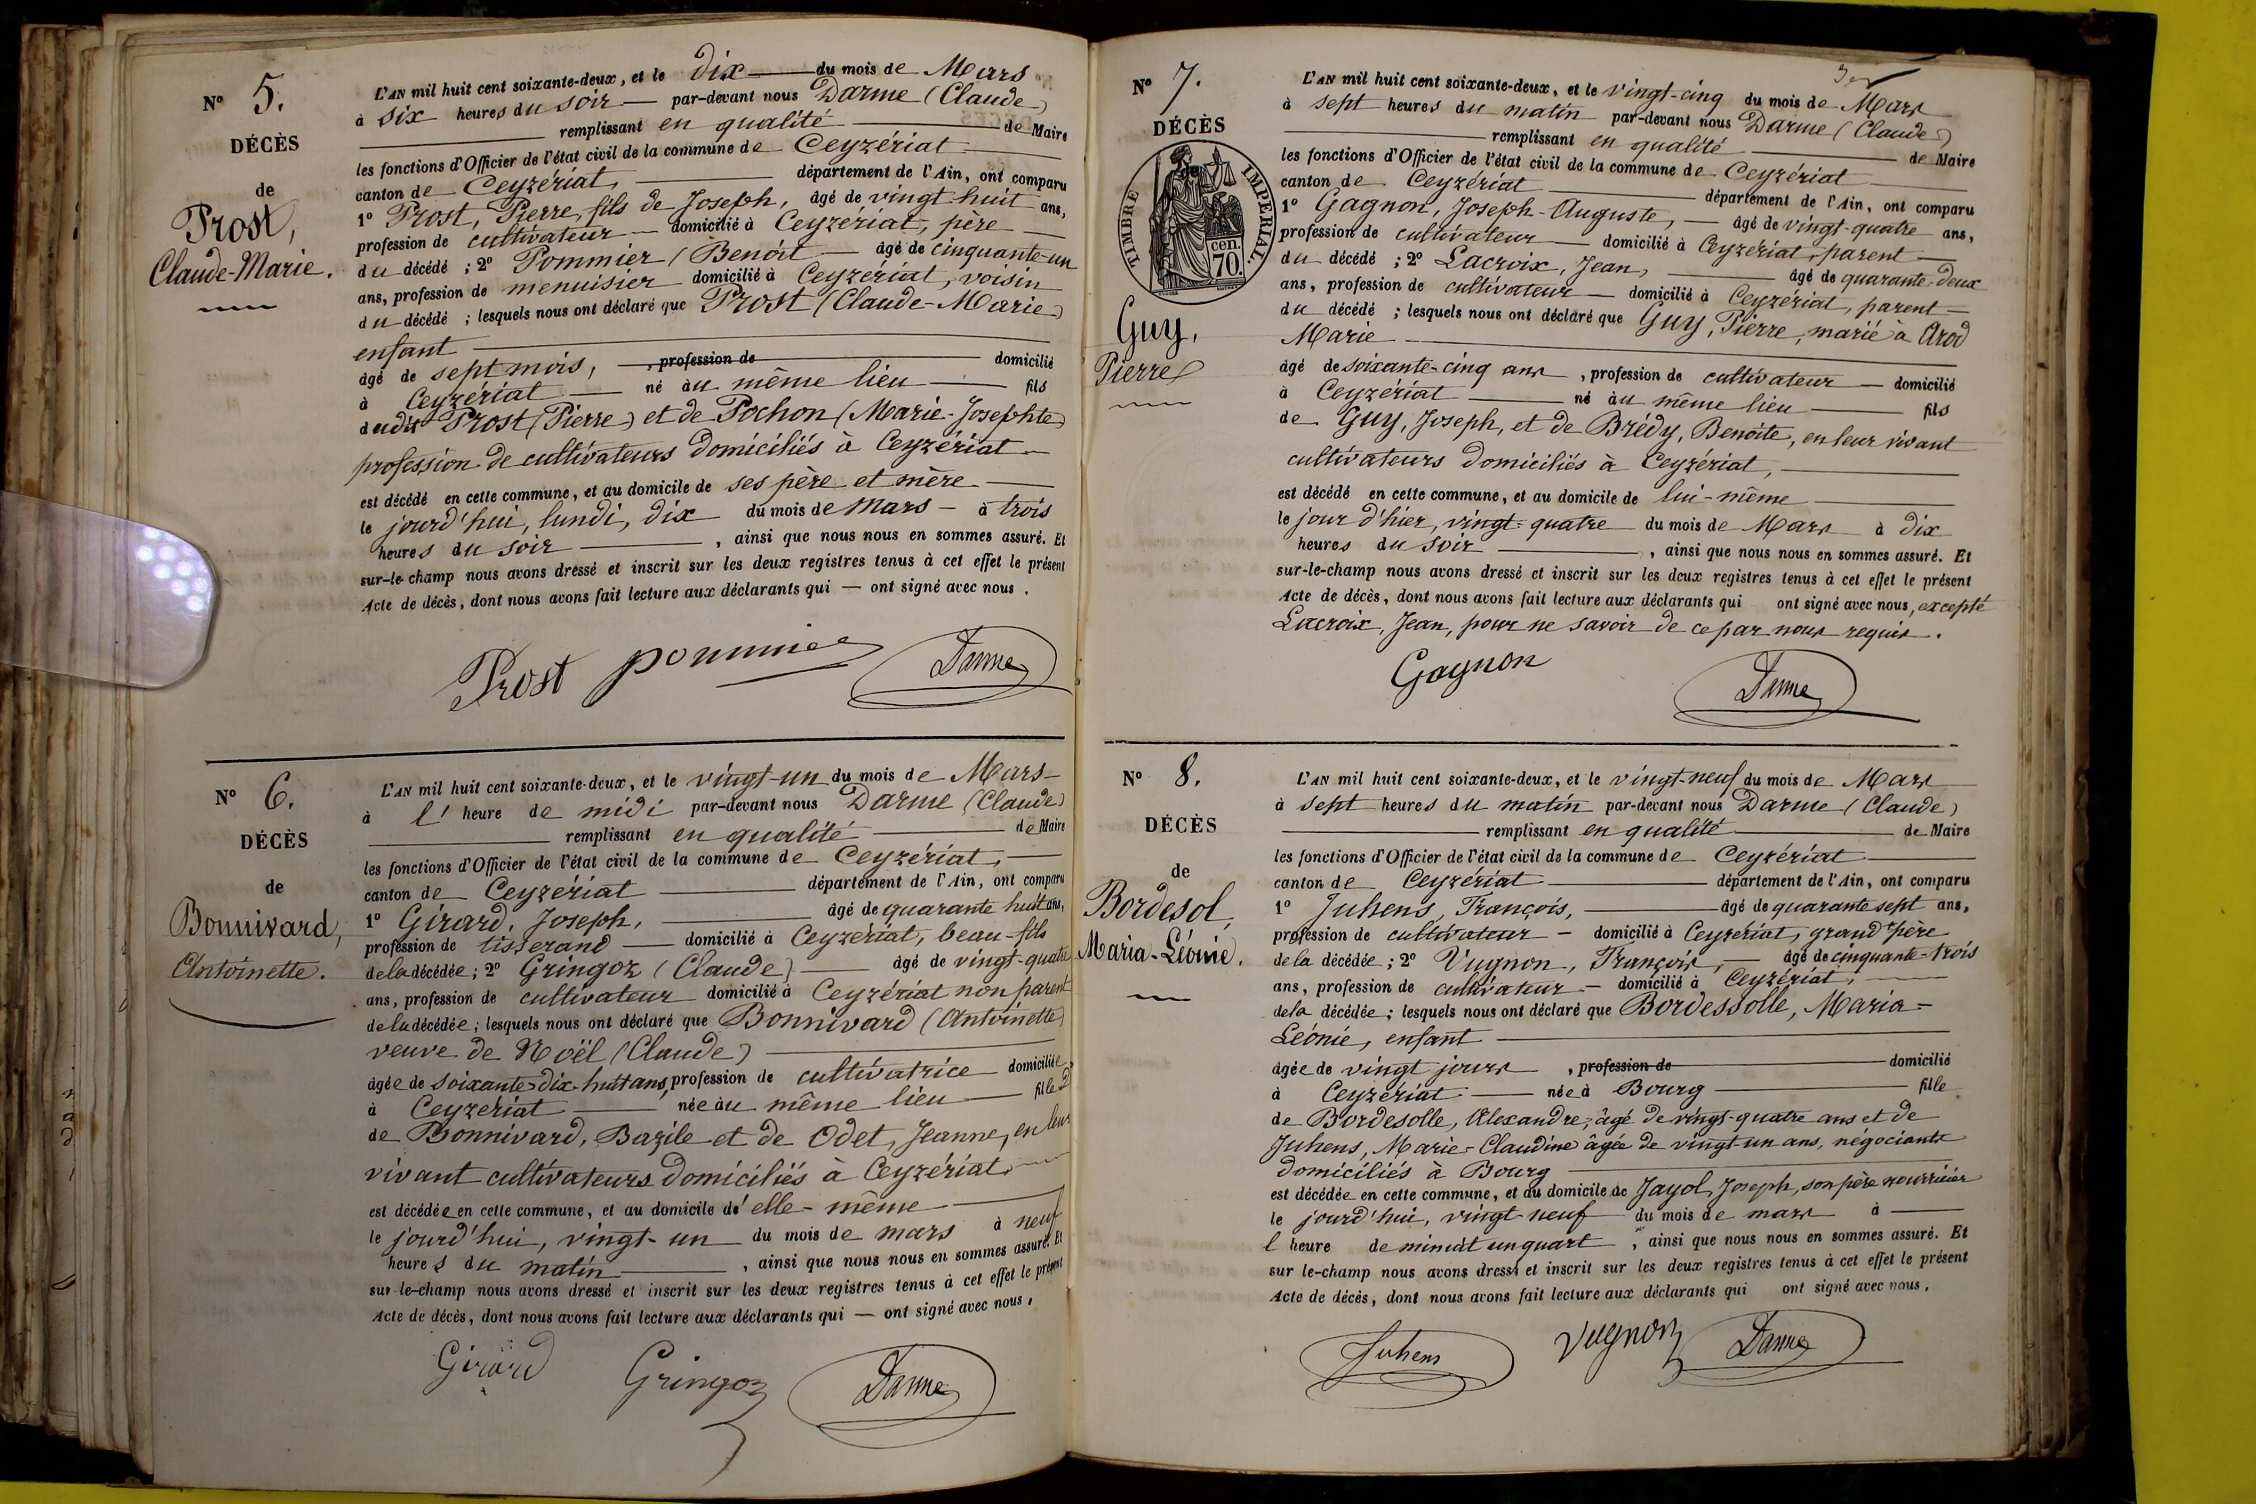 N° 5.
DÉCÈS
de
Prost,
Claude-Marie.
L'AN mil huit cent soixante-deux, et le dix du mois de Mars
à six heures du soir par-devant nous Darme (Claude)
remplissant en qualité de Maire
les fonctions d'Officier de l'état civil de la commune de Ceyzériat
canton de Ceyzériat, département de l'Ain, ont comparu
1° Prost, Pierre, fils de Joseph, âgé de vingt-huit ans,
profession de cultivateur domicilié à Ceyzériat, père
du décédé ; 2° Pommier (Benoît âgé de cinquante-un
ans, profession de menuisier domicilié à Ceyzériat, voisin
du décédé ; lesquels nous ont déclaré que Prost (Claude-Marie)
enfant
âgé de sept mois, , profession de domicilié
à Ceyzériat né au même lieu fils
dudit Prost (Pierre) et de Pochon (Marie-Josephte)
profession de cultivateurs domiciliés à Ceyzériat
est décédé en cette commune, et au domicile de ses père et mère
le jourd'hui, lundi, dix du mois de Mars à trois
heures du soir , ainsi que nous nous en sommes assuré. Et
sur-le-champ nous avons dressé et inscrit sur les deux registres tenus à cet effet le présent
Acte de décès, dont nous avons fait lecture aux déclarants qui ont signé avec nous.
Prost pommier Darme
N° 6.
DÉCÈS
de
Bonnivard,
Antoinette.
L'AN mil huit cent soixante-deux, et le vingt-un du mois de Mars
à l'heure de midi par-devant nous Darme (Claude)
remplissant en qualité de Maire
les fonctions d'Officier de l'état civil de la commune de Ceyzériat,
canton de Ceyzériat département de l'Ain, ont comparu
1° Girard, Joseph, âgé de quarante huit ans,
profession de tisserand domicilié à Ceyzériat, beau-fils
de la décédée ; 2° Gringoz (Claude) âgé de vingt-quatre
ans, profession de cultivateur domicilié à Ceyzériat non parent
de la décédée ; lesquels nous ont déclaré que Bonnivard (Antoinette)
veuve de Noël (Claude)
âgée de soixante-dix-huit ans, profession de cultivatrice domiciliée
à Ceyzériat née au même lieu fille
de Bonnivard, Bazile et de Odet, Jeanne, en leur
vivant cultivateurs domiciliés à Ceyzériat
est décédée en cette commune, et au domicile d'elle-même
le jourd'hui, vingt-un du mois de mars à neuf
heures du matin , ainsi que nous nous en sommes assuré. Et
sur-le-champ nous avons dressé et inscrit sur les deux registres tenus à cet effet le présent
Acte de décès, dont nous avons fait lecture aux déclarants qui ont signé avec nous.
Girard Gringoz Darme
N° 7.
DÉCÈS
de
TIMBRE IMPÉRIAL.
70 cen.
Guy,
Pierre
L'AN mil huit cent soixante-deux, et le vingt-cinq du mois de Mars
à sept heures du matin par-devant nous Darme (Claude)
remplissant en qualité de Maire
les fonctions d'Officier de l'état civil de la commune de Ceyzériat
canton de Ceyzériat département de l'Ain, ont comparu
1° Gagnon, Joseph-Auguste, âgé de vingt-quatre ans,
profession de cultivateur domicilié à Ceyzériat, parent
du décédé ; 2° Lacroix, Jean, âgé de quarante-deux
ans, profession de cultivateur domicilié à Ceyzériat, parent
du décédé ; lesquels nous ont déclaré que Guy, Pierre, marié à Arod
Marie
âgé de soixante-cinq ans , profession de cultivateur domicilié
à Ceyzériat né au même lieu fils
de Guy, Joseph, et de Brédy, Benoite, en leur vivant
cultivateurs domiciliés à Ceyzériat,
est décédé en cette commune, et au domicile de lui-même
le jour d'hier, vingt-quatre du mois de Mars à dix
heures du soir , ainsi que nous nous en sommes assuré. Et
sur-le-champ nous avons dressé et inscrit sur les deux registres tenus à cet effet le présent
Acte de décès, dont nous avons fait lecture aux déclarants qui ont signé avec nous, excepté
Lacroix, Jean, pour ne savoir de ce par nous requis.
Gagnon Darme
N° 8.
DÉCÈS
de
Bordesol,
Maria-Léonie.
L'AN mil huit cent soixante-deux, et le vingt-neuf du mois de Mars
à sept heures du matin par-devant nous Darme (Claude)
remplissant en qualité de Maire
les fonctions d'Officier de l'état civil de la commune de Ceyzériat
canton de Ceyzériat département de l'Ain, ont comparu
1° Juhens, François, âgé de quarante sept ans,
profession de cultivateur domicilié à Ceyzériat, grand père
de la décédée ; 2° Vugnon, François, âgé de cinquante-trois
ans, profession de cultivateur domicilié à Ceyzériat,
de la décédée ; lesquels nous ont déclaré que Bordessolle, Maria-
Léonie, enfant
âgée de vingt jours , profession de domicilié
à Ceyzériat née à Bourg fille
de Bordesolle, Alexandre, âgé de vingt-quatre ans et de
Juhens, Marie-Claudine âgée de vingt-un ans, négociants
domiciliés à Bourg
est décédée en cette commune, et au domicile de Jayol, Joseph, son père nourricier
le jourd'hui, vingt-neuf du mois de mars à
l'heure de minuit un quart , ainsi que nous nous en sommes assuré. Et
sur le-champ nous avons dressé et inscrit sur les deux registres tenus à cet effet le présent
Acte de décès, dont nous avons fait lecture aux déclarants qui ont signé avec nous.
Juhens Vugnon Darme